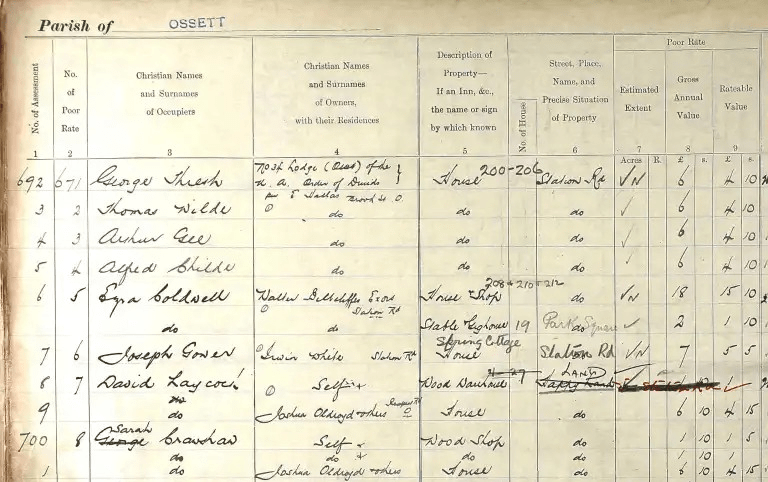 Parish of OSSETT
Poor Rate
No. of Assessment
No. of Poor Rate
Christian Names and Surnames of Occupiers
Christian Names and Surnames of Owners, with their Residences
Description of Property— If an Inn, &c., the name or sign by which known
No. of House
Street, Place, Name, and Precise Situation of Property
Estimated Extent
Gross Annual Value
Rateable Value
1 2 3 4 5 6 7 8 9
Acres R. £ s. £ s.
692 671 George Thresh No 34 Lodge (Osst) of the Order of Druids House 200-206 Station Rd 6 4 10
3 2 Thomas Wilde do do do 6 4 10
4 3 Arthur Gee do do do 6 4 10
5 4 Alfred Childe do do do 6 4 10
208 + 210 + 212
6 5 Ezra Coldwell Walter Exors Station Rd House Shop do 18 15 10
do do Stable 19 Park Square do 2 1 10
Spring Cottage
7 6 Joseph Gower Irwin White Station Rd House Station Rd 7 5 5
8 7 David Laycock Self Wood Warehouse LAND
9 do Joshua Oldroyd + others House do 6 10 4 15
Sarah
700 8 George Crawshaw Self Wood Shop do 1 10 1 5
do do do do 1 10 1
1 do Joshua Oldroyd + others House do 6 10 4 15